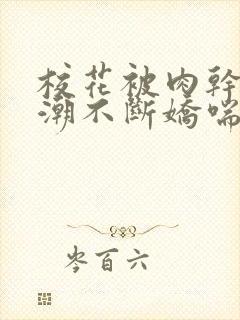 校花被肉幹
潮不斷嬌喘
岑百六